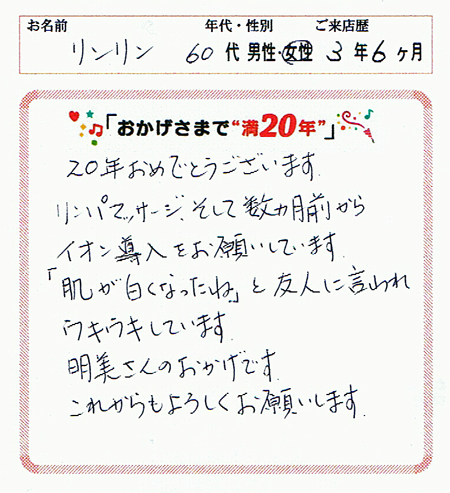 お名前 年代・性別 ご来店歴
リンリン 60 代 男性・女性 3 年 6 ヶ月
「おかげさまで“満20年”」
20年おめでとうございます.
リンパマッサージ、そして数カ月前から
イオン導入をお願いしています.
「肌が白くなったね」と友人に言われ
ウキウキしています.
明美さんのおかげです.
これからもよろしくお願いします.